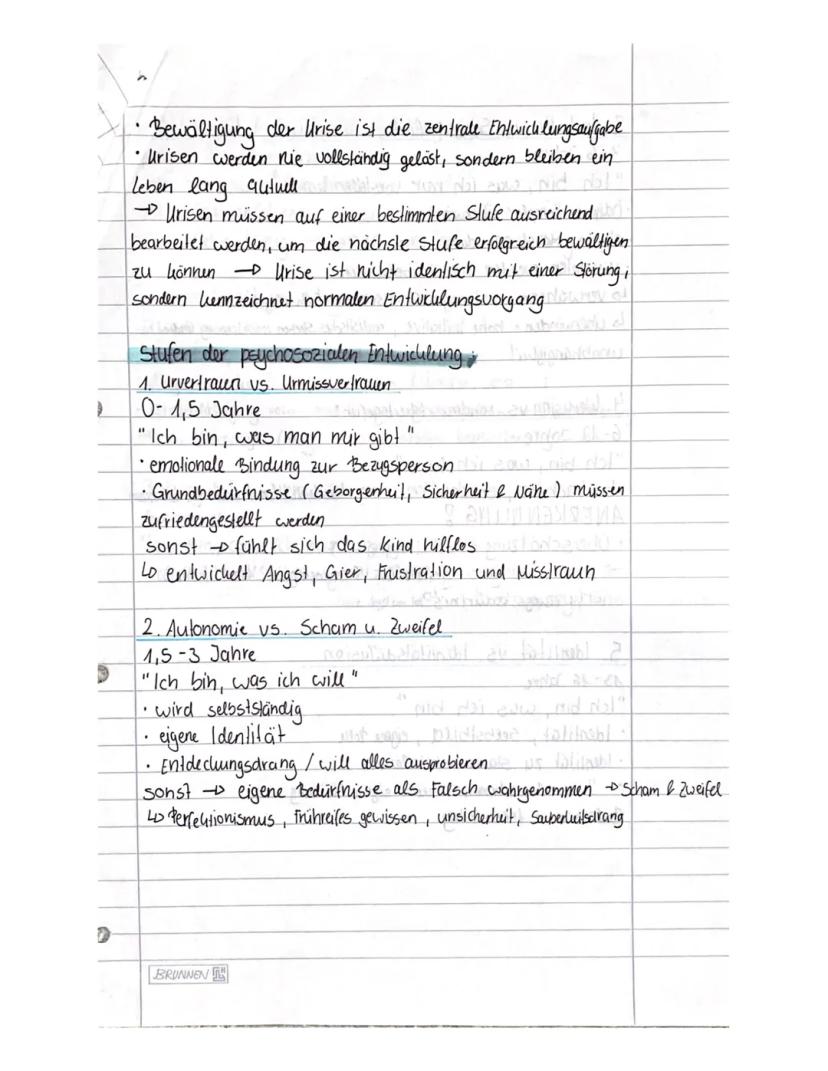 · Bewältigung der Krise ist die zentrale Entwicklungsaufgabe
· Krisen werden nie vollständig gelöst, sondern bleiben ein
Leben lang aktuell
→ Krisen müssen auf einer bestimmten Stufe ausreichend
bearbeitet werden, um die nächste Stufe erfolgreich bewältigen
zu können → Krise ist nicht identisch mit einer Störung,
sondern kennzeichnet normalen Entwicklungsvorgang
Stufen der psychosozialen Entwicklung:
1. Urvertrauen vs. Urmissvertrauen
0- 1,5 Jahre
"Ich bin, was man mir gibt"
· emotionale Bindung zur Bezugsperson
· Grundbedürfnisse (Geborgenheit, Sicherheit & Nähe) müssen
zufriedengestellt werden
sonst → fühlt sich das Kind hilflos
↳ entwickelt Angst, Gier, Frustration und Misstraun
2. Autonomie vs. Scham u. Zweifel
1,5-3 Jahre
"Ich bin, was ich will"
· wird selbstständig
· eigene Identität
· Entdeckungsdrang / will alles ausprobieren
sonst → eigene Bedürfnisse als Falsch wahrgenommen → Scham & Zweifel
↳ Perfektionismus, Frühreifes gewissen, unsicherheit, Sauberkeitsdrang
BRUNNEN